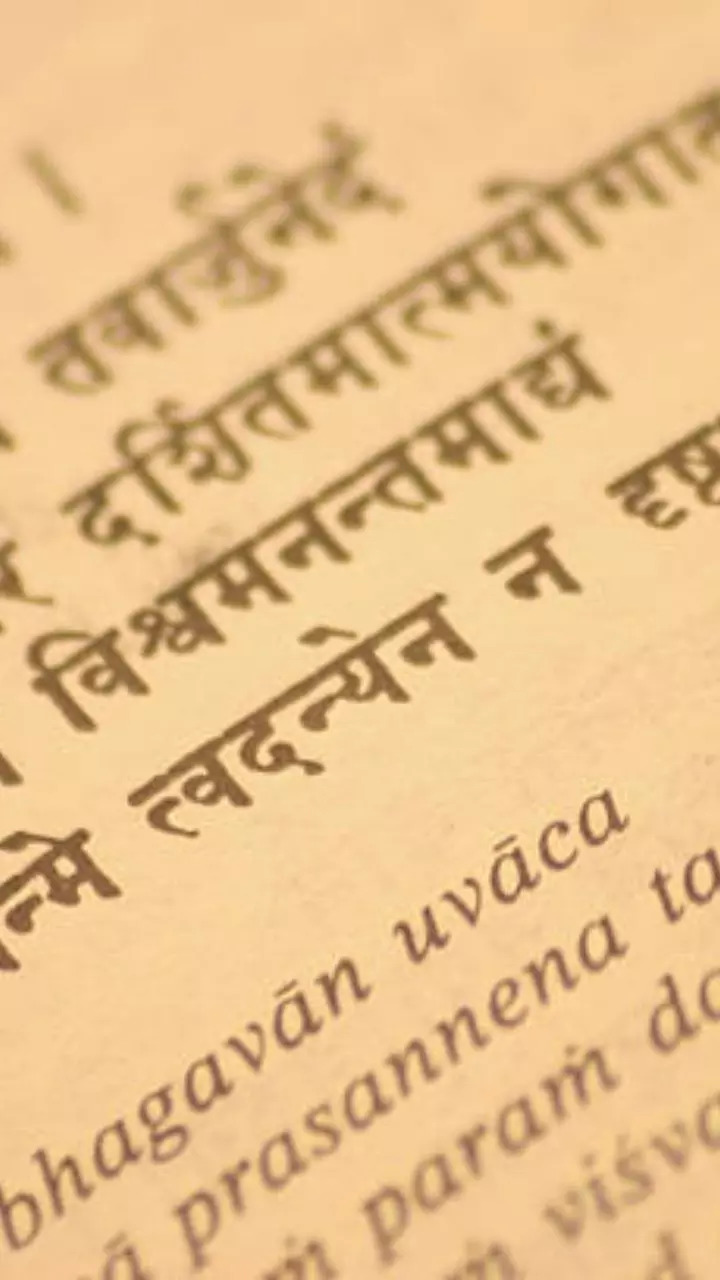 तवार्जुनेदं
दर्शितमात्मयोगात
विश्वमनन्तमाद्यं
न्मे त्वदन्येन न दृष्ट
bhagavān uvāca
ā prasannena ta
ṁ paraṁ da
ṁ viśva